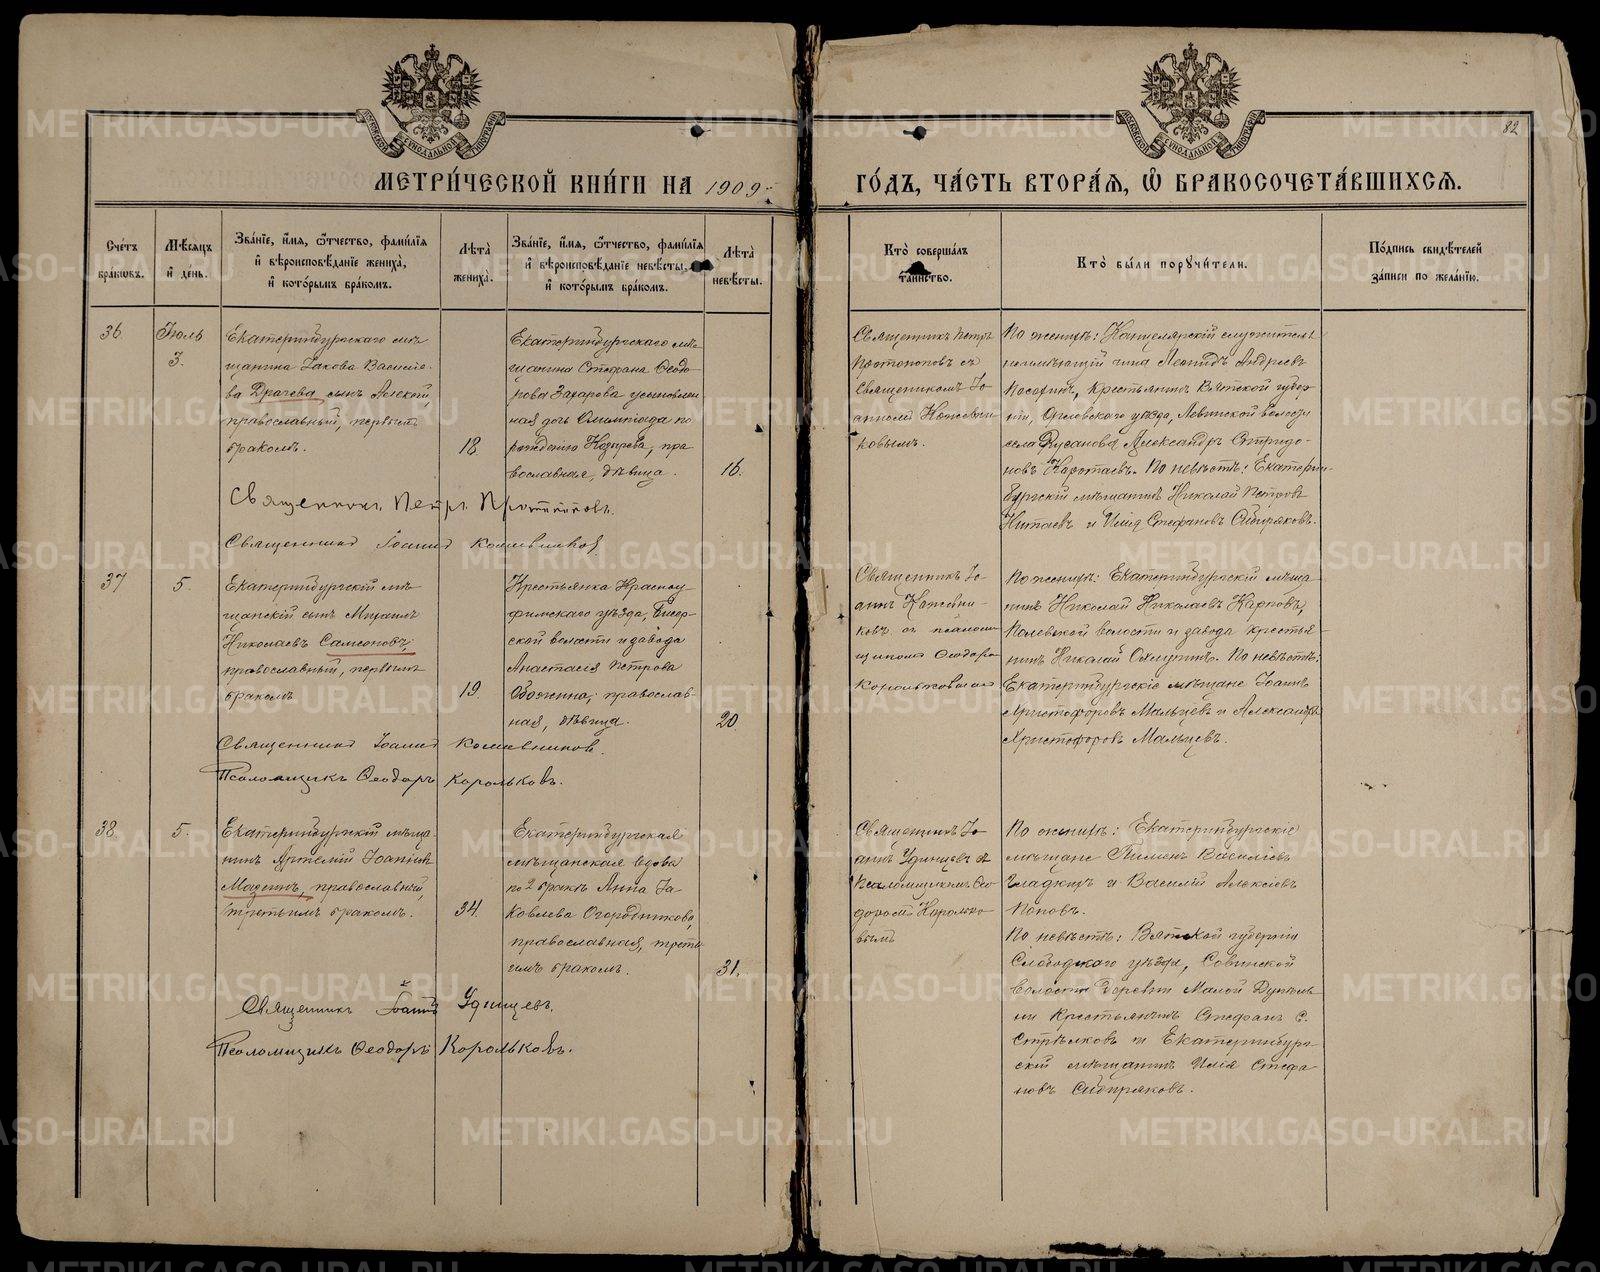 МОСКОВСКОЙ СУНОДАЛЬНОЙ ТИПОГРАФІИ
МОСКОВСКОЙ СУНОДАЛЬНОЙ ТИПОГРАФІИ
82
МЕТРИ́ЧЕСКОЙ КНИ́ГИ НА 1909
ГО́ДЪ, ЧА́СТЬ ВТОРА́Я, Ѡ БРАКОСОЧЕТА́ВШИХСЯ.
Сче́тъ бра́кѡвъ.
Мѣ́сяцъ и де́нь.
Зва́нїе, и́мя, ѻ́тчество, фами́лїя
и вѣроисповѣ́данїе жениха̀,
и кото́рымъ бра́комъ.
Лѣта̀ жениха̀.
Зва́нїе, и́мя, ѻ́тчество, фами́лїя
и вѣроисповѣ́данїе невѣ́сты,
и кото́рымъ бра́комъ.
Лѣта̀ невѣ́сты.
Кто̀ соверша́лъ
та́инство.
Кто̀ бы́ли поручи́тели.
По́дпись свидѣ́телей
за́писи по жела́нїю.
36.
Іюль
3.
Екатеринбургскаго мѣ-
щанина Іакова Василье-
ва Драчева сынъ Алексѣй,
православный, первымъ
бракомъ.
18.
Екатеринбургскаго мѣ-
щанина Стефана Ѳеодо-
рова Захарова
ная дочь Олимпіада по
рожденію Назарова, пра-
вославная, дѣвица.
16.
Священникъ Петръ
Протопоповъ съ
Священникомъ Іо-
анномъ Кожевни-
ковымъ.
По женихѣ: Канцелярскій служитель
неимѣющій чина Леонидъ Андреевъ
Крестьянинъ Вятской губер-
ніи, Орловскаго уѣзда, Левинской волости
села Русанова Александръ Спиридо-
новъ По невѣстѣ: Екатерин-
бургскій мѣщанинъ Николай Петровъ
и Илія Стефановъ Сибиряковъ.
Священникъ Петръ Протопоповъ.
Священникъ Іоаннъ Кожевниковъ
37
5.
Екатеринбургскій мѣ-
щанскій сынъ Михаилъ
Николаевъ Самсоновъ,
православный, первымъ
бракомъ
19.
Крестьянка Красноу-
фимскаго уѣзда, Бисер-
ской волости и завода
Анастасія Петрова
православ-
ная, дѣвица.
20.
Священникъ Іо-
аннъ Кожевни-
ковъ съ псаломщ-
щикомъ Ѳеодоро
Корольковымъ
По женихѣ: Екатеринбургскій мѣща-
нинъ Николай Николаевъ Карповъ,
Полевской волости и завода крестья-
нинъ Николай По невѣстѣ:
Екатеринбургскіе мѣщане Іоаннъ
Христофоровъ Мальцевъ и Александръ
Христофоровъ Мальцевъ.
Священникъ Іоаннъ Кожевниковъ.
Псаломщикъ Ѳеодоръ Корольковъ.
38.
5.
Екатеринбургскій мѣща-
нинъ Артемій Іоанновъ
Мазеинъ, православный,
третьимъ бракомъ.
34.
Екатеринбургская
мѣщанская вдова
по 2 бракѣ Анна Іа-
ковлева Огородникова,
православная, треть-
имъ бракомъ.
31.
Священникъ Іо-
аннъ Удинцевъ съ
псаломщикомъ Ѳео-
доромъ Королько-
вымъ
По женихѣ: Екатеринбургскіе
мѣщане Пименъ Василіевъ
Гладкихъ и Василій Алексіевъ
Поповъ.
По невѣстѣ: Вятской губерніи
Слободскаго уѣзда, Совинской
волости деревни Малой
крестьянинъ Стефанъ С.
Стрѣлковъ и Екатеринбург-
скій мѣщанинъ Илія Стефа-
новъ Сибиряковъ.
Священникъ Іоаннъ Удинцевъ.
Псаломщикъ Ѳеодоръ Корольковъ.
METRIKI.GASO-URAL.RU